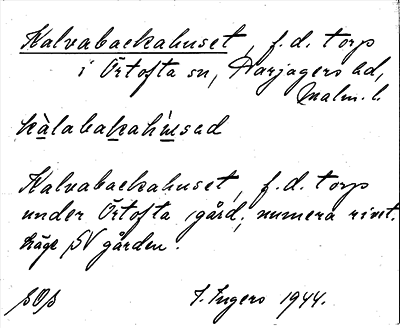 Kalvabackahuset, f.d. torp
i Örtofta sn, Harjagers hd,
Malm. l.
kàlabakahúsad
Kalvabackahuset, f.d. torp
under Örtofta gård; numera rivet.
Läge SV gården.
SOS
I. Ingers 1944.